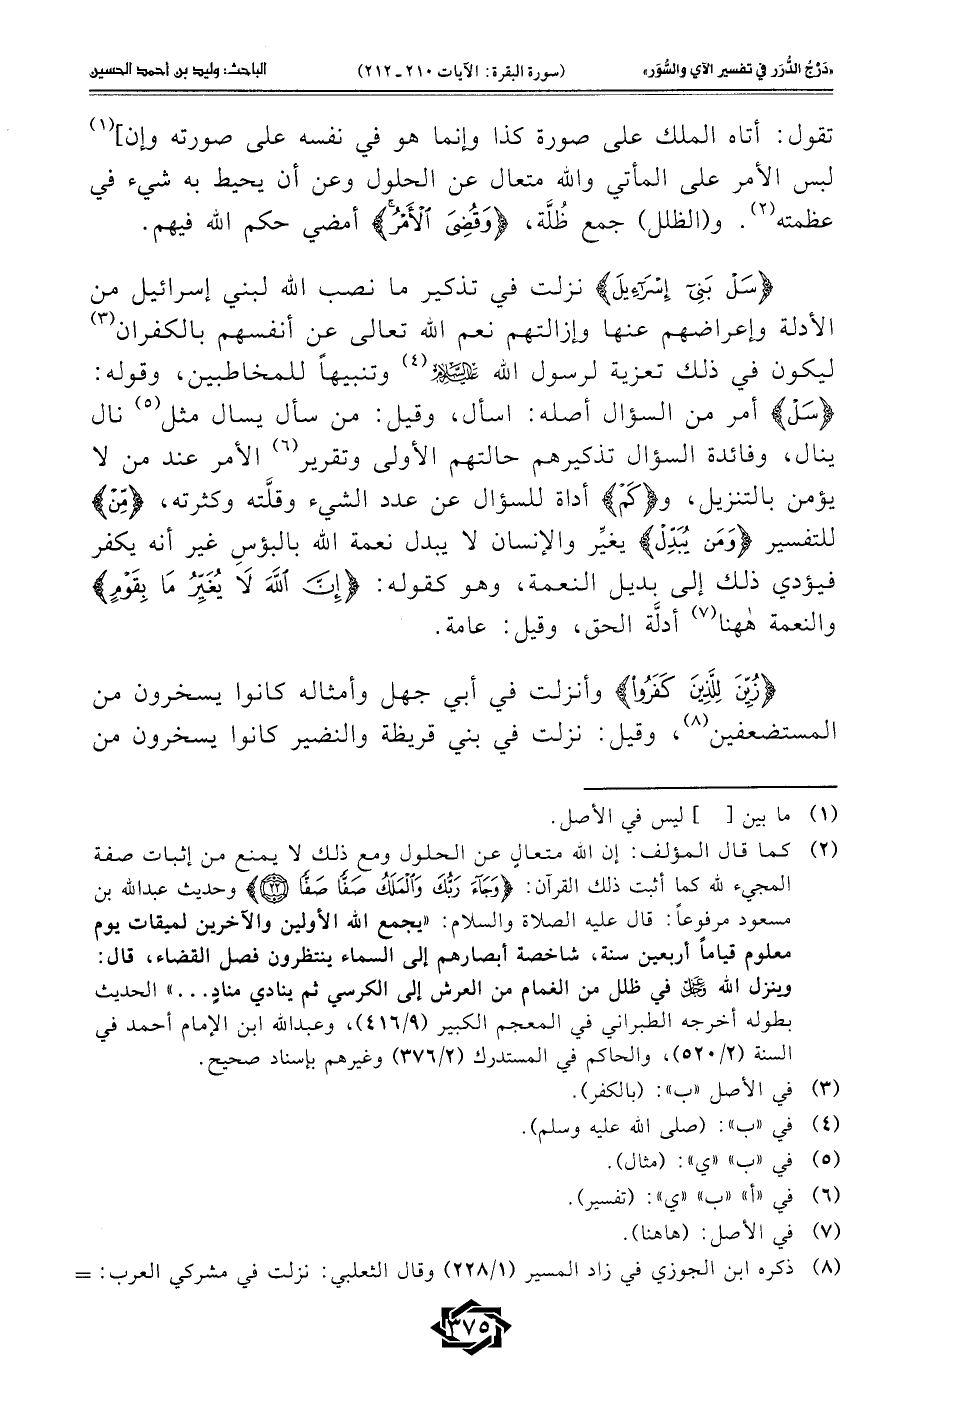 «دَرْجُ الدُّرَر في تفسير الآي والسُّوَر» (سورة البقرة: الآيات ٢١٠ـ٢١٢) الباحث: وليد بن أحمد الحسين
تقول: أتاه الملك على صورة كذا وإنما هو في نفسه على صورته وإن](١)
لبس الأمر على المأتي والله متعال عن الحلول وعن أن يحيط به شيء في
عظمته(٢). و(الظلل) جمع ظُلَّة، ﴿وَقُضِىَ ٱلْأَمْرُ﴾ أمضي حكم الله فيهم.
﴿سَلْ بَنِىٓ إِسْرَٰٓءِيلَ﴾ نزلت في تذكير ما نصب الله لبني إسرائيل من
الأدلة وإعراضهم عنها وإزالتهم نعم الله تعالى عن أنفسهم بالكفران(٣)
ليكون في ذلك تعزية لرسول الله عليه السلام(٤) وتنبيهاً للمخاطبين، وقوله:
﴿سَلْ﴾ أمر من السؤال أصله: اسأل، وقيل: من سأل يسال مثل(٥) نال
ينال، وفائدة السؤال تذكيرهم حالتهم الأولى وتقرير(٦) الأمر عند من لا
يؤمن بالتنزيل، و﴿كَمْ﴾ أداة للسؤال عن عدد الشيء وقلَّته وكثرته، ﴿مِّنْ﴾
للتفسير ﴿وَمَن يُبَدِّلْ﴾ يغيِّر والإنسان لا يبدل نعمة الله بالبؤسِ غير أنه يكفر
فيؤدي ذلك إلى بديل النعمة، وهو كقوله: ﴿إِنَّ ٱللَّهَ لَا يُغَيِّرُ مَا بِقَوْمٍ﴾
والنعمة هٰهنا(٧) أدلَّة الحق، وقيل: عامة.
﴿زُيِّنَ لِلَّذِينَ كَفَرُوا۟﴾ وأنزلت في أبي جهل وأمثاله كانوا يسخرون من
المستضعفين(٨)، وقيل: نزلت في بني قريظة والنضير كانوا يسخرون من
(١) ما بين [ ] ليس في الأصل.
(٢) كما قال المؤلف: إن الله متعالٍ عن الحلول ومع ذلك لا يمنع من إثبات صفة
المجيء لله كما أثبت ذلك القرآن: ﴿وَجَآءَ رَبُّكَ وَٱلْمَلَكُ صَفًّا صَفًّا ٢٢﴾ وحديث عبدالله بن
مسعود مرفوعاً: قال عليه الصلاة والسلام: «يجمع الله الأولين والآخرين لميقات يوم
معلوم قياماً أربعين سنة، شاخصة أبصارهم إلى السماء ينتظرون فصل القضاء، قال:
وينزل الله ﷻ في ظلل من الغمام من العرش إلى الكرسي ثم ينادي منادٍ...» الحديث
بطوله أخرجه الطبراني في المعجم الكبير (٤١٦/٩)، وعبدالله ابن الإمام أحمد في
السنة (٥٢٠/٢)، والحاكم في المستدرك (٣٧٦/٢) وغيرهم بإسناد صحيح.
(٣) في الأصل «ب»: (بالكفر).
(٤) في «ب»: (صلى الله عليه وسلم).
(٥) في «ب» «ي»: (مثال).
(٦) في «أ» «ب» «ي»: (تفسير).
(٧) في الأصل: (هاهنا).
(٨) ذكره ابن الجوزي في زاد المسير (٢٢٨/١) وقال الثعلبي: نزلت في مشركي العرب: =
٣٧٥